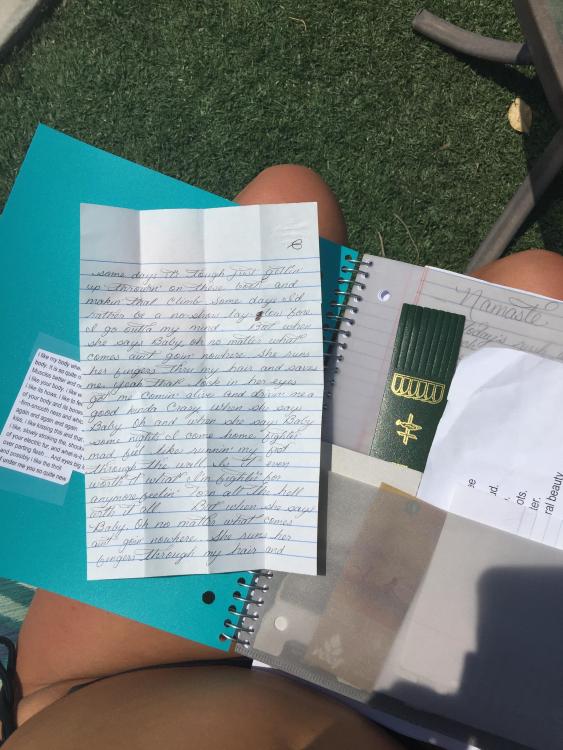 some days it's tough just gettin
up throwin' on these boots and
makin that climb some days I'd
rather be a no show lay low fore
I go outa my mind But when
she says Baby oh no matter what
comes ain't goin nowhere she runs
her fingers thru my hair and saves
me yeah that look in her eyes
got me comin alive and drivin me a
good kinda Crazy when she says
Baby Oh and when she say Baby
some nights I come home fightin
mad feel like runnin' my fist
through the wall is it even
worth it what I'm fightin' for
anymore feelin' torn all to hell
with it all But when she says
Baby, Oh no matter what comes
ain't goin nowhere she runs her
fingers through my hair and
I like my body whe
body. It is so quite n
Muscles better and ne
i like your body. i like w
i like its hows. i like to fe
of your body and its bones
-firm-smooth ness and whic
again and again and again
kiss, i like kissing this and that
i like, slowly stroking the, shocki
of your electric fur, and what-is-it
over parting flesh ... And eyes big
and possibly i like the thrill
of under me you so quite new
Namaste
Today's
ud.
ots,
ler.
ral beauty